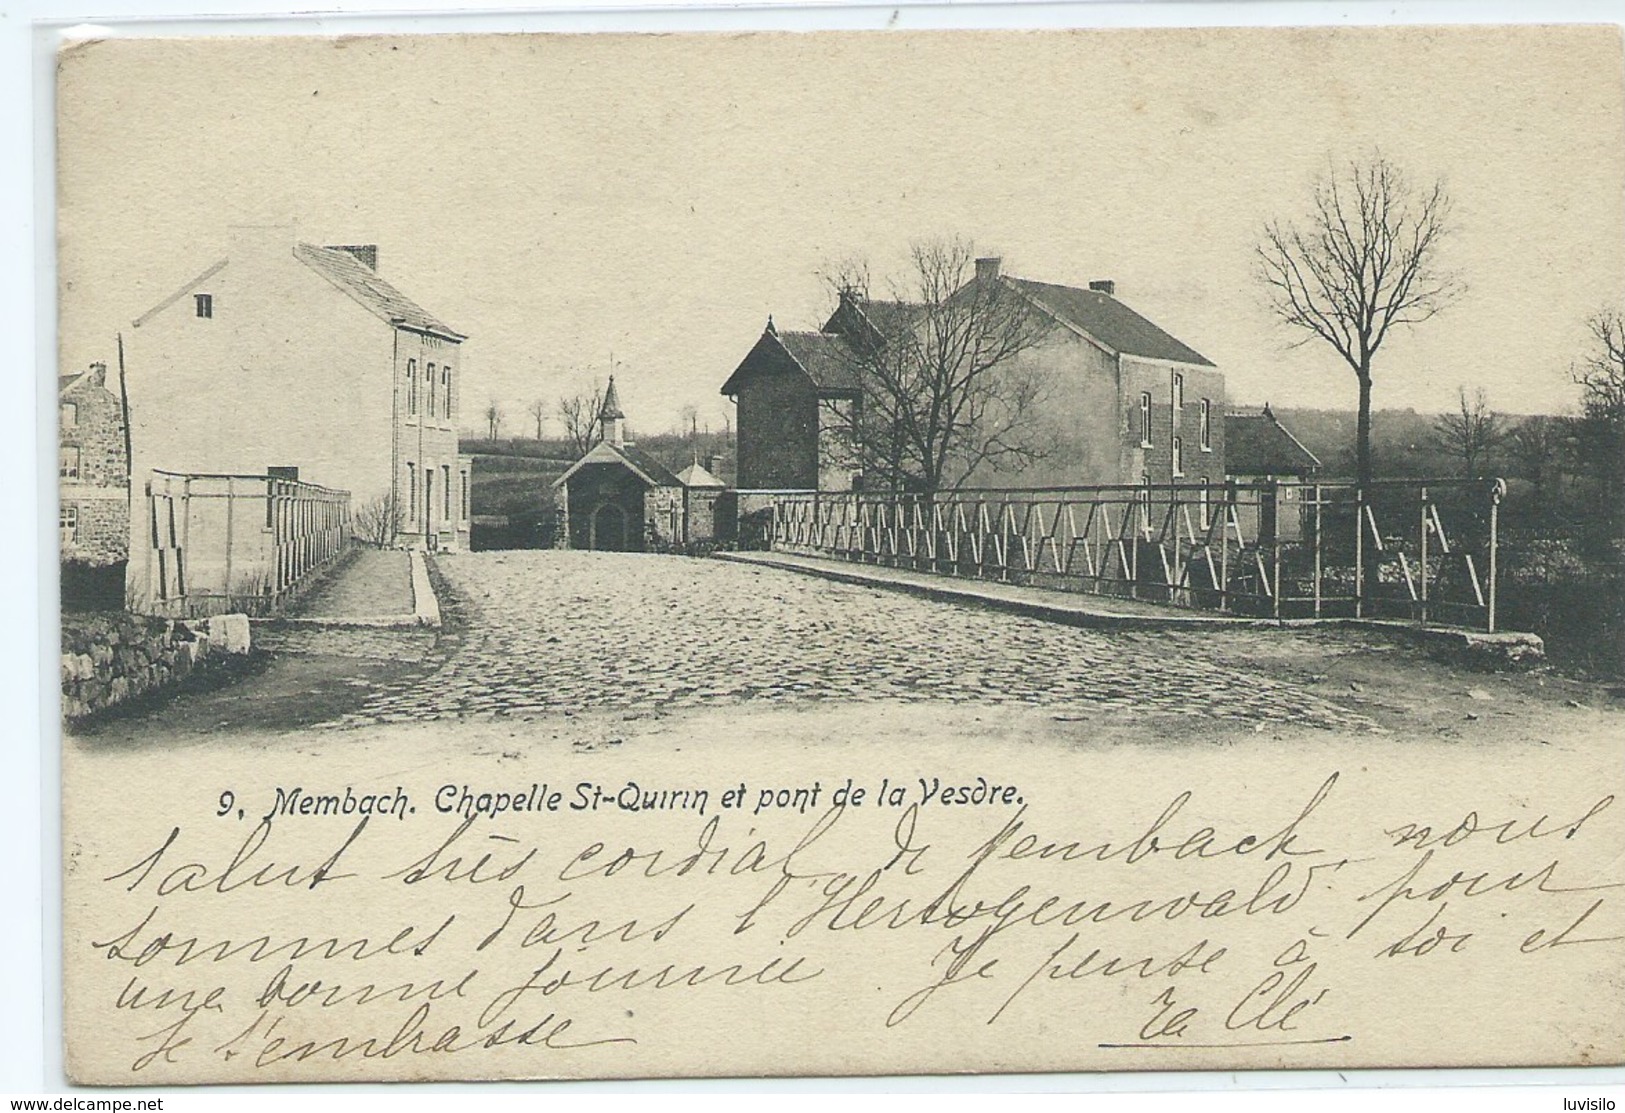 9. Membach. Chapelle St-Quirin et pont de la Vesdre.
Salut très cordial de Membach, nous
sommes dans l'Hertogenwald pour
une bonne journée Je pense à toi et
Je t'embrasse Ta Clé
delcampe.net
luvisilo